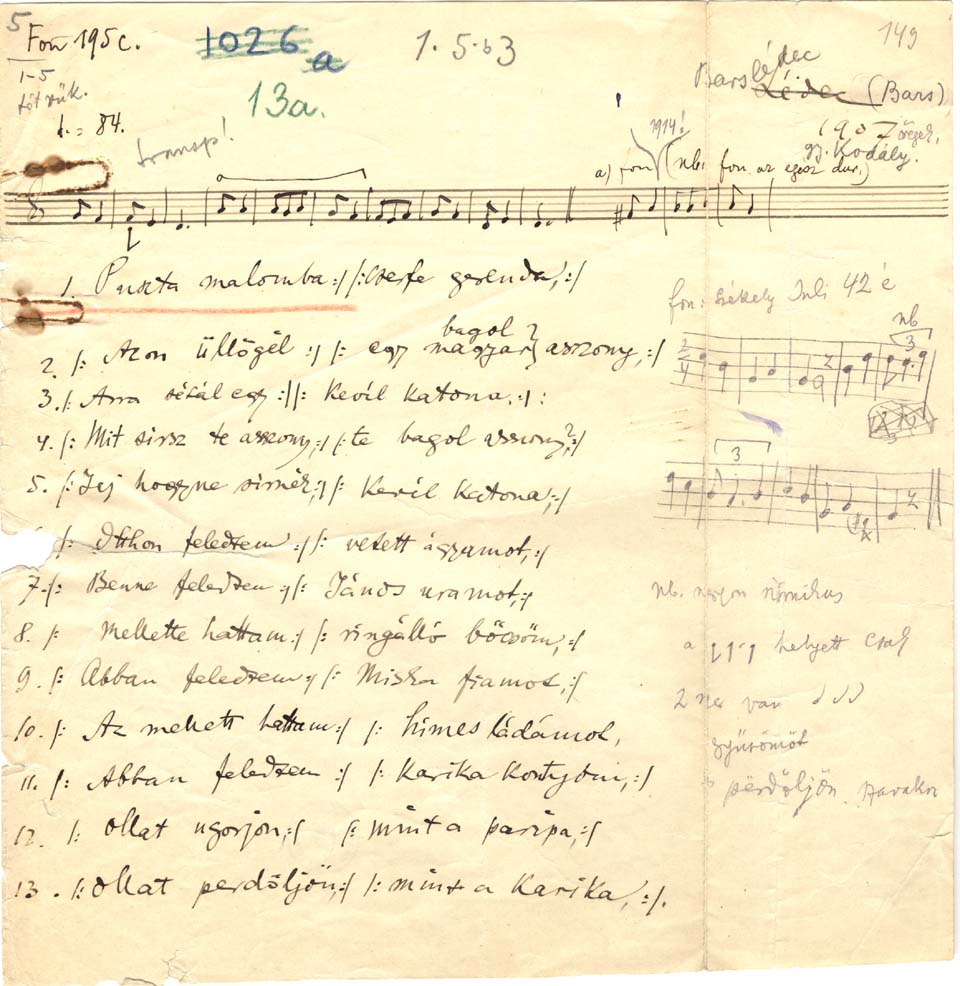 5
Fon 195c.
1026
a
1. 5. b 3
149
1-5
13a.
♩. = 84.
transp!
Barslédec
Lédec (Bars)
1907
gy. Kodály.
1914!
a) fon (nb. fon. az egész dur.)
1. Puszta malomba :/ /: cserfe gerenda, :/
bagol ?
2. /: Azon üllögél :/ /: egy magyar asszony, :/
3. /: Arra sétál egy :/ /: kevíl katona, :/ :
4. /: Mit sirsz te asszony, :/ /: te bagol asszony? :/
5. /: Jej hogyne sirnék, :/ /: kevíl katona, :/
/: Otthon feledtem :/ /: vetett ágyamot, :/
7. /: Benne feledtem :/ /: János uramot, :/
8. /: Mellette hattam :/ /: ringálló bőcsőm, :/
9. /: Abban feledtem :/ /: Miska fiamot, :/
10. /: Az mellett hattam :/ /: himes ládámot,
11. /: Abban feledtem :/ /: karika kontyom, :/
12. /: Ollat ugorjon, :/ /: mint a paripa, :/
13. /: Ollat perdőljön, :/ /: mint a karika, :/.
fon: Székely Juli 42 é
nb
3
2
4
3
nb. nagyon ritmikus
a helyett csak
2 szer van
gyürömöt
s përdőljön szavakon